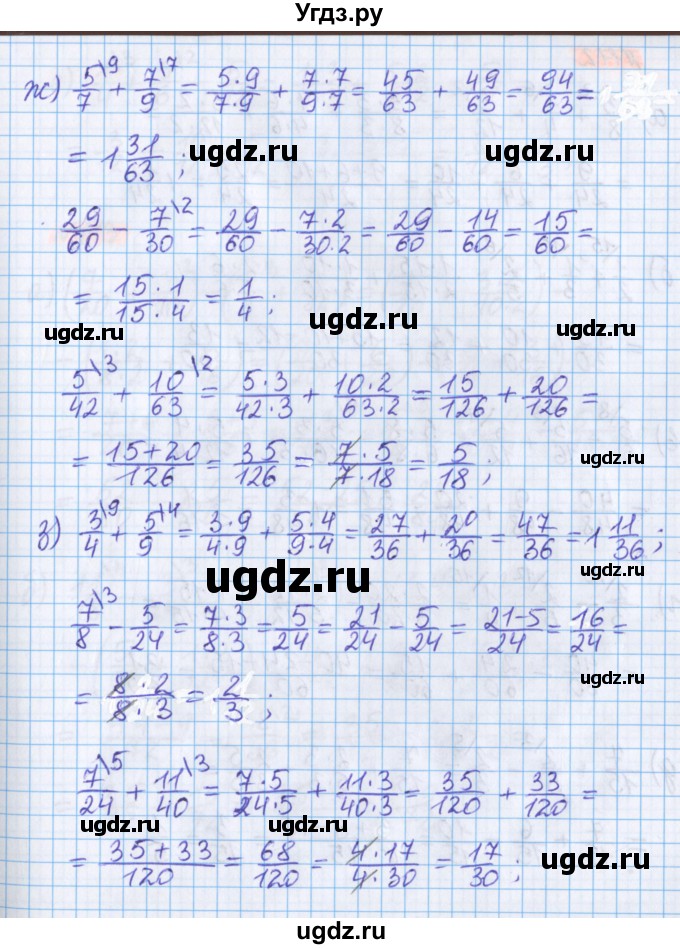 Угдз.ру
ж) 5/7\9 + 7/9\7 = 5·9/7·9 + 7·7/9·7 = 45/63 + 49/63 = 94/63 =
= 1 31/63 ; ugdz.ru ugdz.ru
29/60 - 7/30\2 = 29/60 - 7·2/30·2 = 29/60 - 14/60 = 15/60 =
= 15·1/15·4 = 1/4 ;
ugdz.ru ugdz.ru ugdz.ru
5/42\3 + 10/63\2 = 5·3/42·3 + 10·2/63·2 = 15/126 + 20/126 =
ugdz.ru ugdz.ru
= 15+20/126 = 35/126 = 7·5/7·18 = 5/18 ;
ugdz.ru
з) 3/4\9 + 5/9\4 = 3·9/4·9 + 5·4/9·4 = 27/36 + 20/36 = 47/36 = 1 11/36 ;
ugdz.ru ugdz.ru
7/8\3 - 5/24 = 7·3/8·3 = 5/24 = 21/24 - 5/24 = 21-5/24 = 16/24 =
ugdz.ru ugdz.ru
= 8·2/8·3 = 2/3 ;
ugdz.ru
7/24\5 + 11/40\3 = 7·5/24·5 + 11·3/40·3 = 35/120 + 33/120 =
ugdz.ru ugdz.ru
= 35+33/120 = 68/120 = 4·17/4·30 = 17/30 ;
ugdz.ru
ugdz.ru ugdz.ru